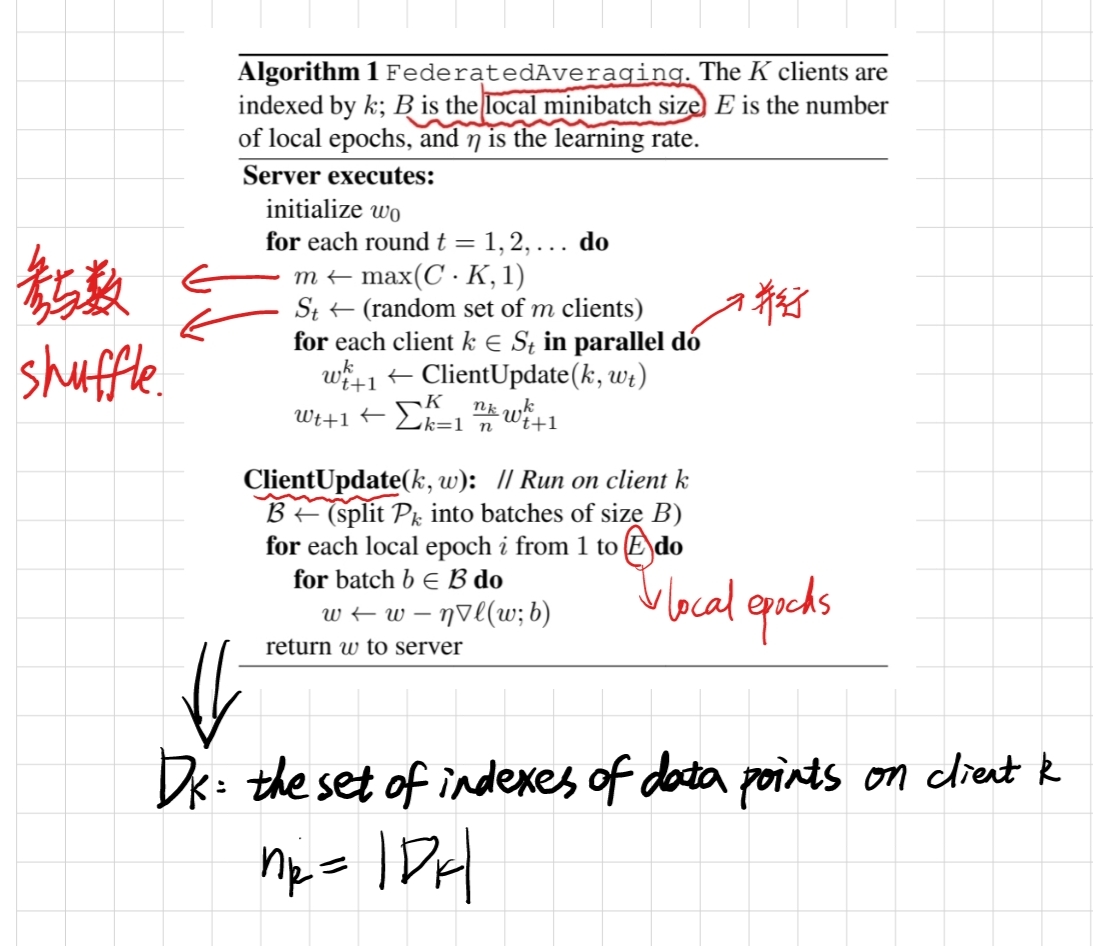 Algorithm 1 FederatedAveraging. The K clients are
indexed by k; B is the local minibatch size, E is the number
of local epochs, and η is the learning rate.
Server executes:
initialize w₀
for each round t = 1, 2, . . . do
参与数 m ← max(C · K, 1)
shuffle. Sₜ ← (random set of m clients)
for each client k ∈ Sₜ in parallel do 并行
w_{t+1}^k ← ClientUpdate(k, wₜ)
w_{t+1} ← ∑_{k=1}^K \frac{n_k}{n} w_{t+1}^k
ClientUpdate(k, w): // Run on client k
ℬ ← (split 𝒫ₖ into batches of size B)
for each local epoch i from 1 to E do
local epochs
for batch b ∈ ℬ do
w ← w − η∇ℓ(w; b)
return w to server
Dₖ: the set of indexes of data points on client k
nₖ = |Dₖ|